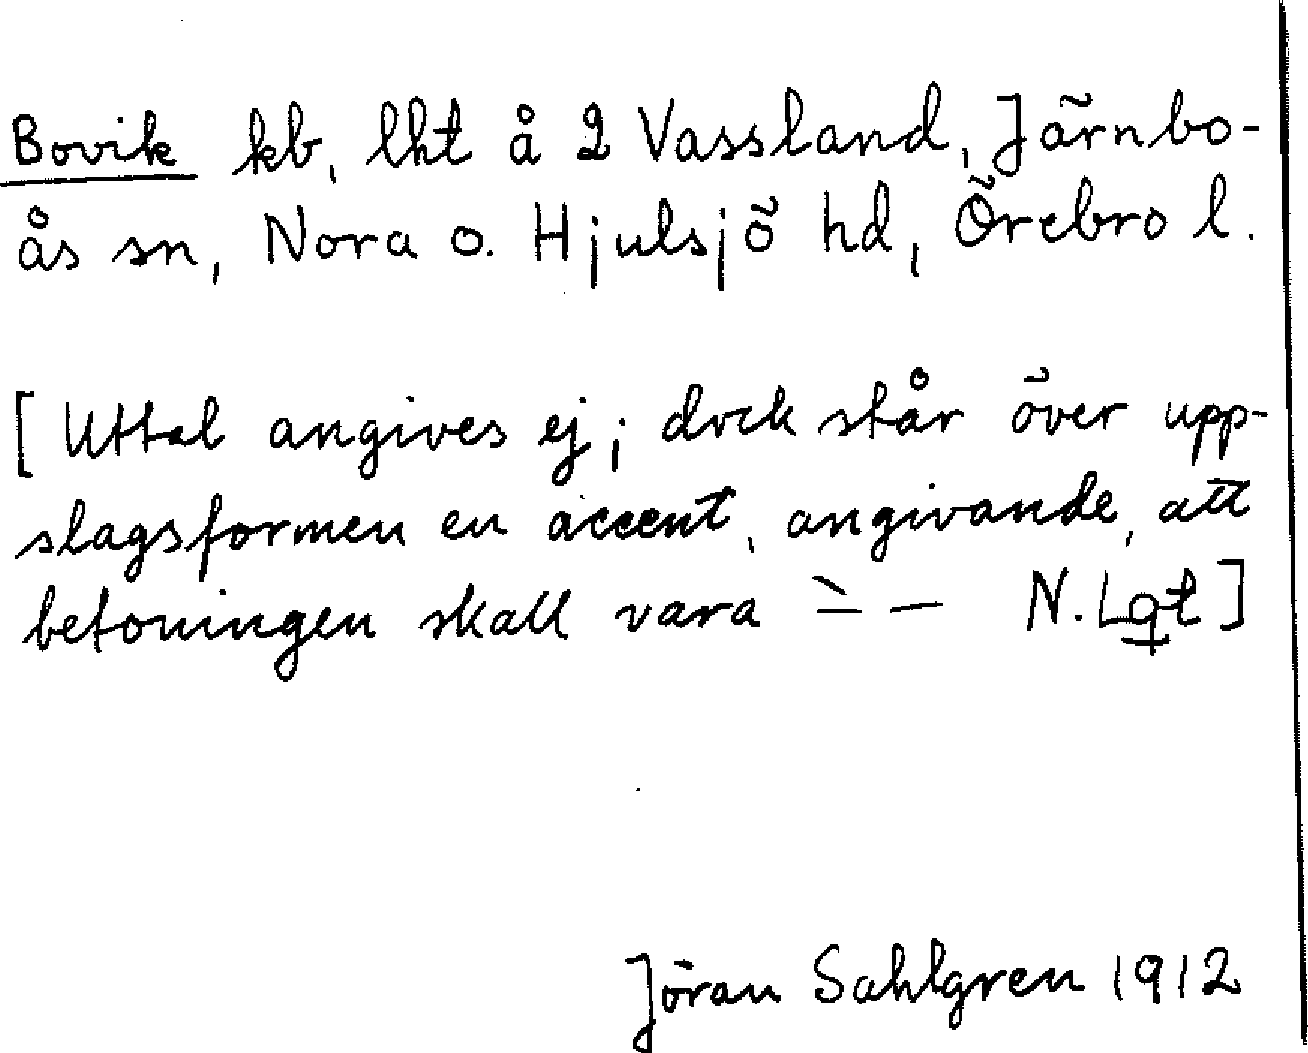 Bovik kb, lht å 2 Vassland, Järnbo-
ås sn, Nora o. Hjulsjö hd, Örebro l.
[Uttal angives ej; dock står över upp-
slagsformen en accent, angivande, att
betoningen skall vara ̀— — N. Lgt]
Jöran Sahlgren 1912